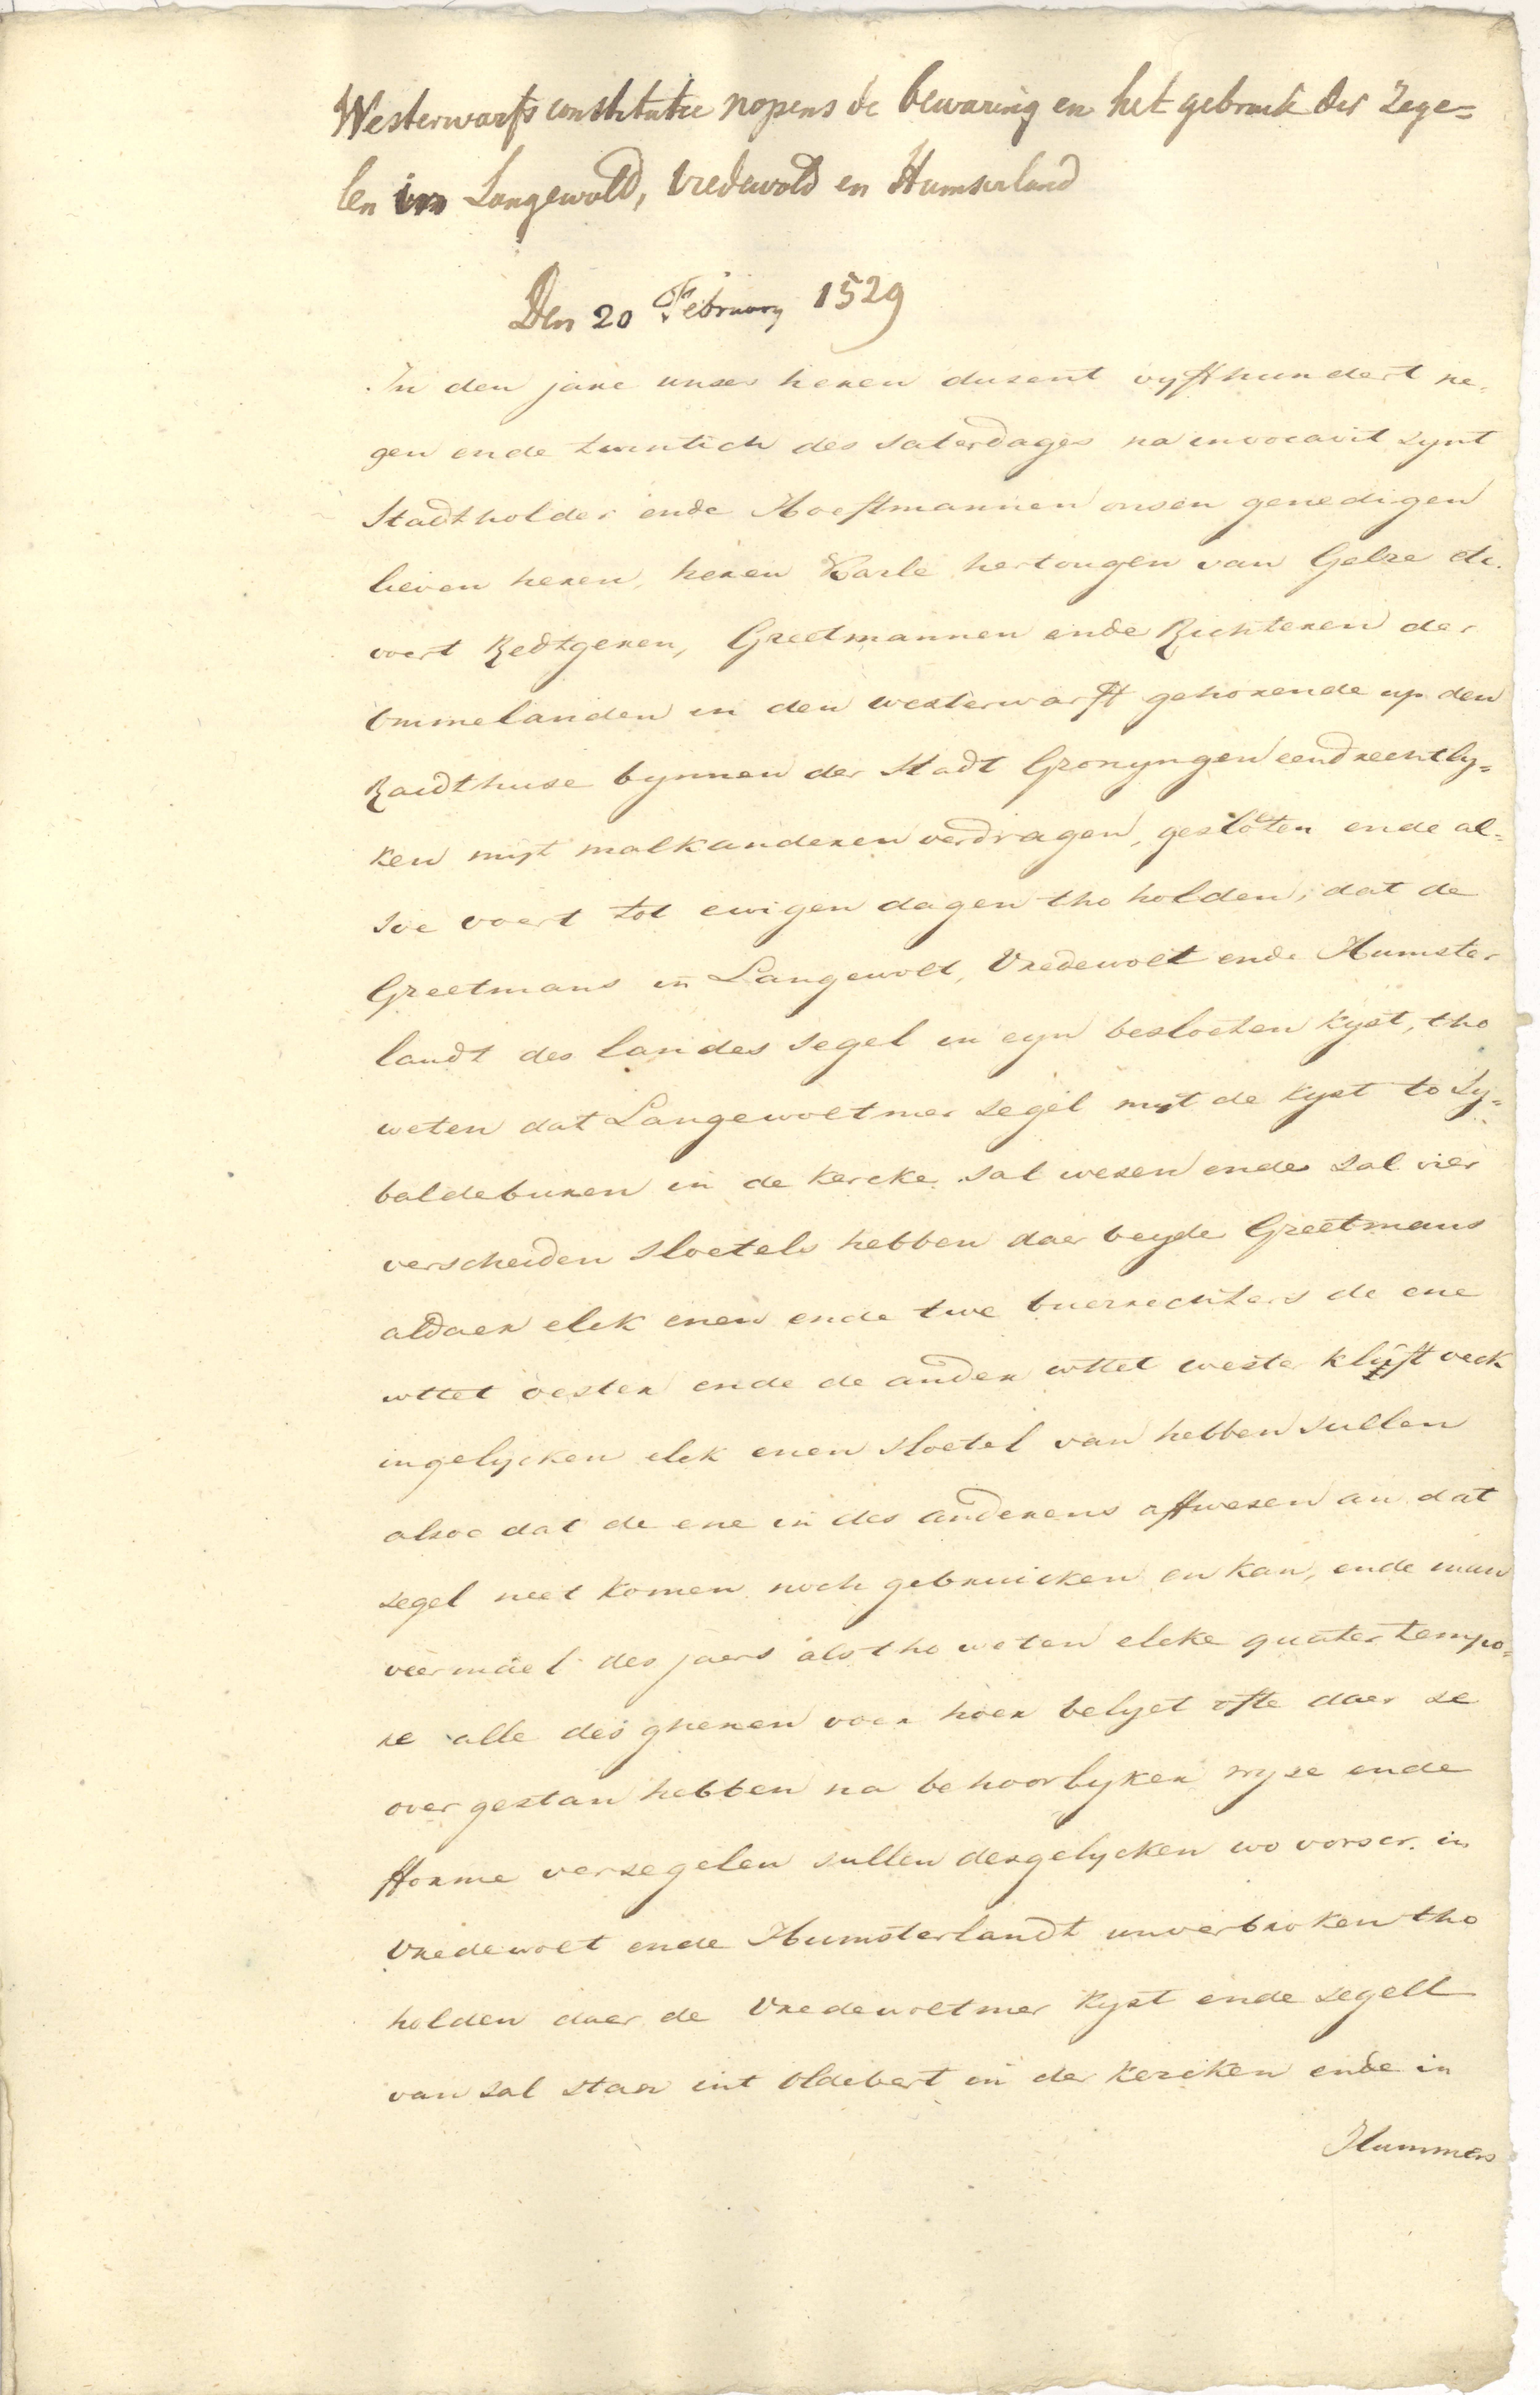 Westerwarfs constitutie nopens de bewaring en het gebruik der Zege=
len in Langewold, Vredewold en Humserland
Den 20 February 1529
In den jare unser heren dusent vyffhundert ne-
gen ende twintich des saterdages na invocavit synt
Stadtholder ende Hoeftmannen onsen genedigen
lieven heren, heren Karle hertougen van Gelre etc.
voert Redtgeren, Greetmannen ende Richteren der
Ommelanden in den westerwarfft gehorende up den
Raidthuse bynnen der Stadt Gronyngen eendrechtly=
ken myt malkanderen verdragen, gesloten ende al=
soe voert tot ewigen dagen tho holden, dat de
Greetmans in Langewolt, Vredewolt ende Humster
landt des landes segel in eyn besloeten kyst, tho
weten dat Langewoltmer segel myt de kyst to Sy=
baldeburen in de kercke sal wesen ende sal vier
verscheiden sloetels hebben daer beyde Greetmans
aldaer elck enen ende twe buerrechters de ene
uttet oester ende de ander uttet wester klufft oeck
ingelycken elck enen sloetel van hebben sullen
alsoe dat de ene in des anderens affwesen an dat
segel neet komen noch gebruicken en kan, ende mun
veermael des jaers als tho weten elcke quatertempo=
re alle des ghenen voer hoer belyet ofte daer se
over gestan hebben na behoorlyker wyse ende
fforme versegelen sullen desgelycken wo vorscr. in
Vredewolt ende Humsterlandt unverbroken tho
holden daer de Vredewoltmer kyst ende segell
van sal staen int Oldebert in der kercken ende in
Hummers